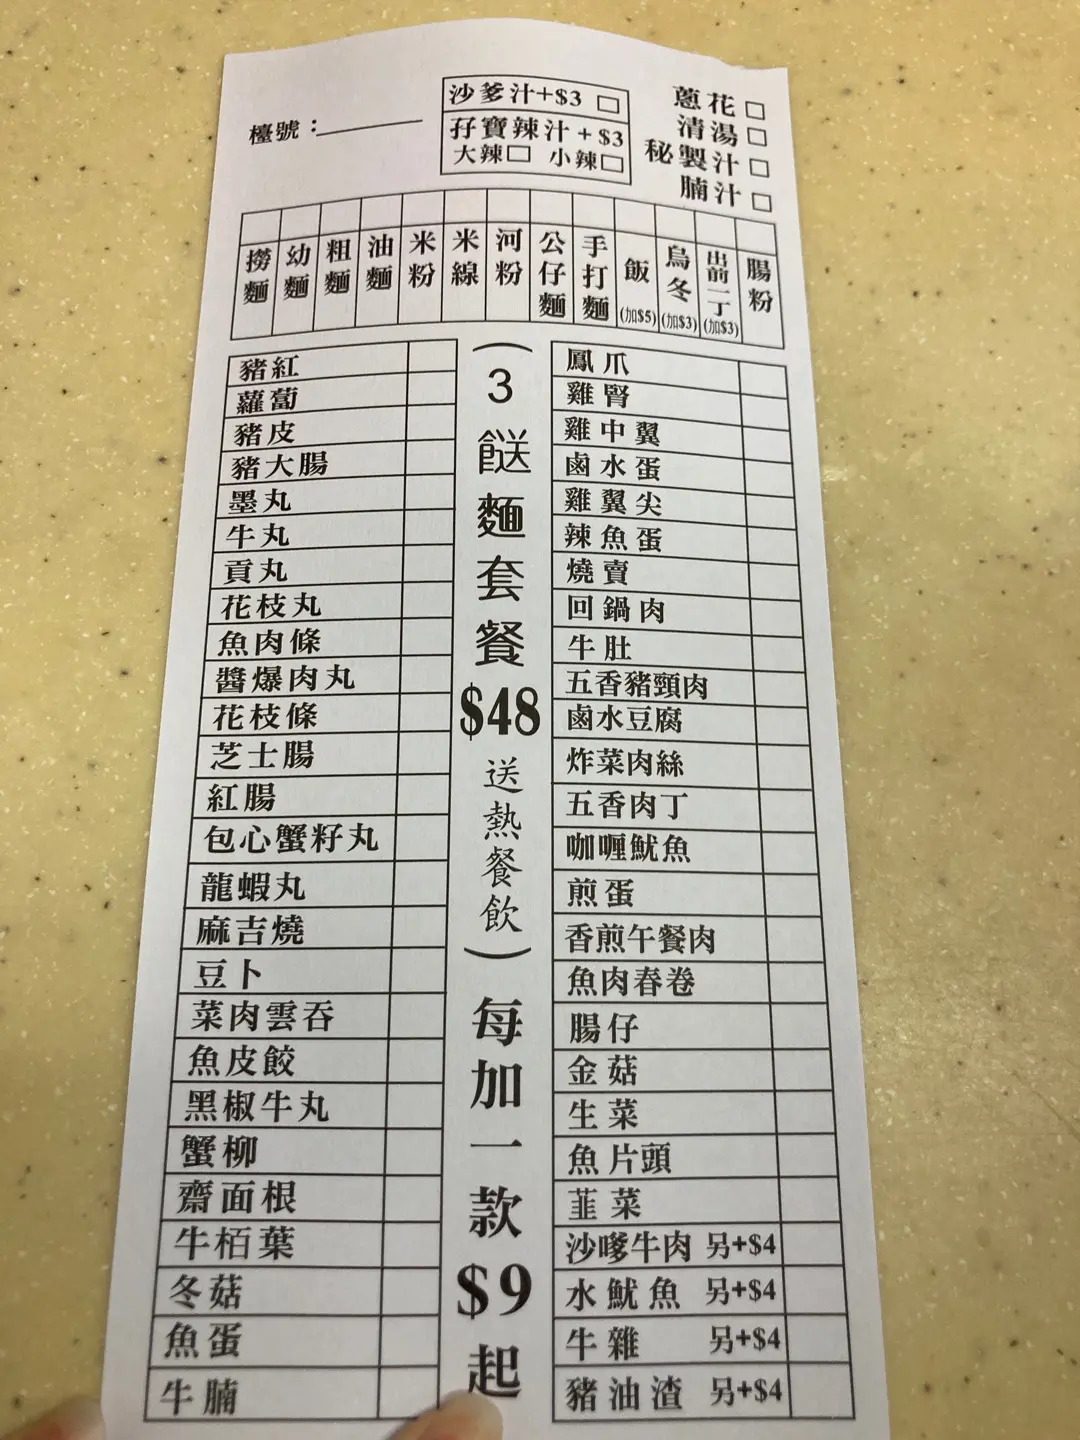 檯號：
沙爹汁+$3 □
孖寶辣汁+$3
大辣□ 小辣□
蔥花 □
清湯 □
秘製汁 □
腩汁 □
撈麵
幼麵
粗麵
油麵
米粉
米線
河粉
公仔麵
手打麵
飯(加$5)
烏冬(加$3)
出前一丁(加$3)
腸粉
豬紅
蘿蔔
豬皮
豬大腸
墨丸
牛丸
貢丸
花枝丸
魚肉條
醬爆肉丸
花枝條
芝士腸
紅腸
包心蟹籽丸
龍蝦丸
麻吉燒
豆卜
菜肉雲吞
魚皮餃
黑椒牛丸
蟹柳
齋面根
牛栢葉
冬菇
魚蛋
牛腩
(3餸麵套餐$48送熱餐飲)每加一款$9起
鳳爪
雞腎
雞中翼
鹵水蛋
雞翼尖
辣魚蛋
燒賣
回鍋肉
牛肚
五香豬頸肉
鹵水豆腐
炸菜肉絲
五香肉丁
咖喱魷魚
煎蛋
香煎午餐肉
魚肉春卷
腸仔
金菇
生菜
魚片頭
韮菜
沙嗲牛肉 另+$4
水魷魚 另+$4
牛雜 另+$4
豬油渣 另+$4